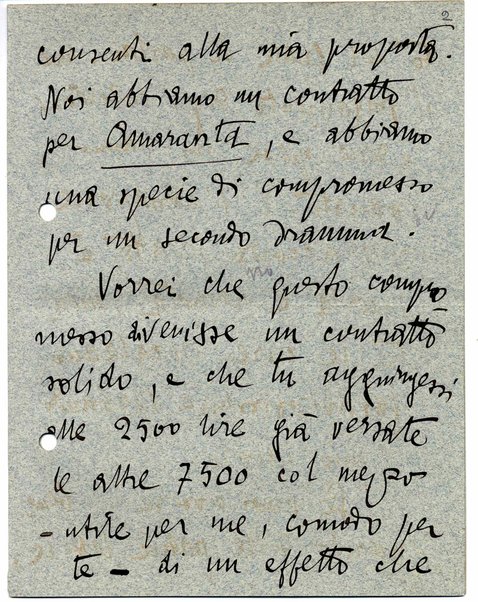 2
consenti alla mia proposta.
Noi abbiamo un contratto
per Amaranta, e abbiamo
una specie di compromesso
per un secondo dramma.
no
Vorrei che questo compro
messo divenisse un contratto
solido, e che tu aggiungessi
alle 2500 lire già versate
le altre 7500 col mezzo
- utile per me, comodo per
te - di un effetto che